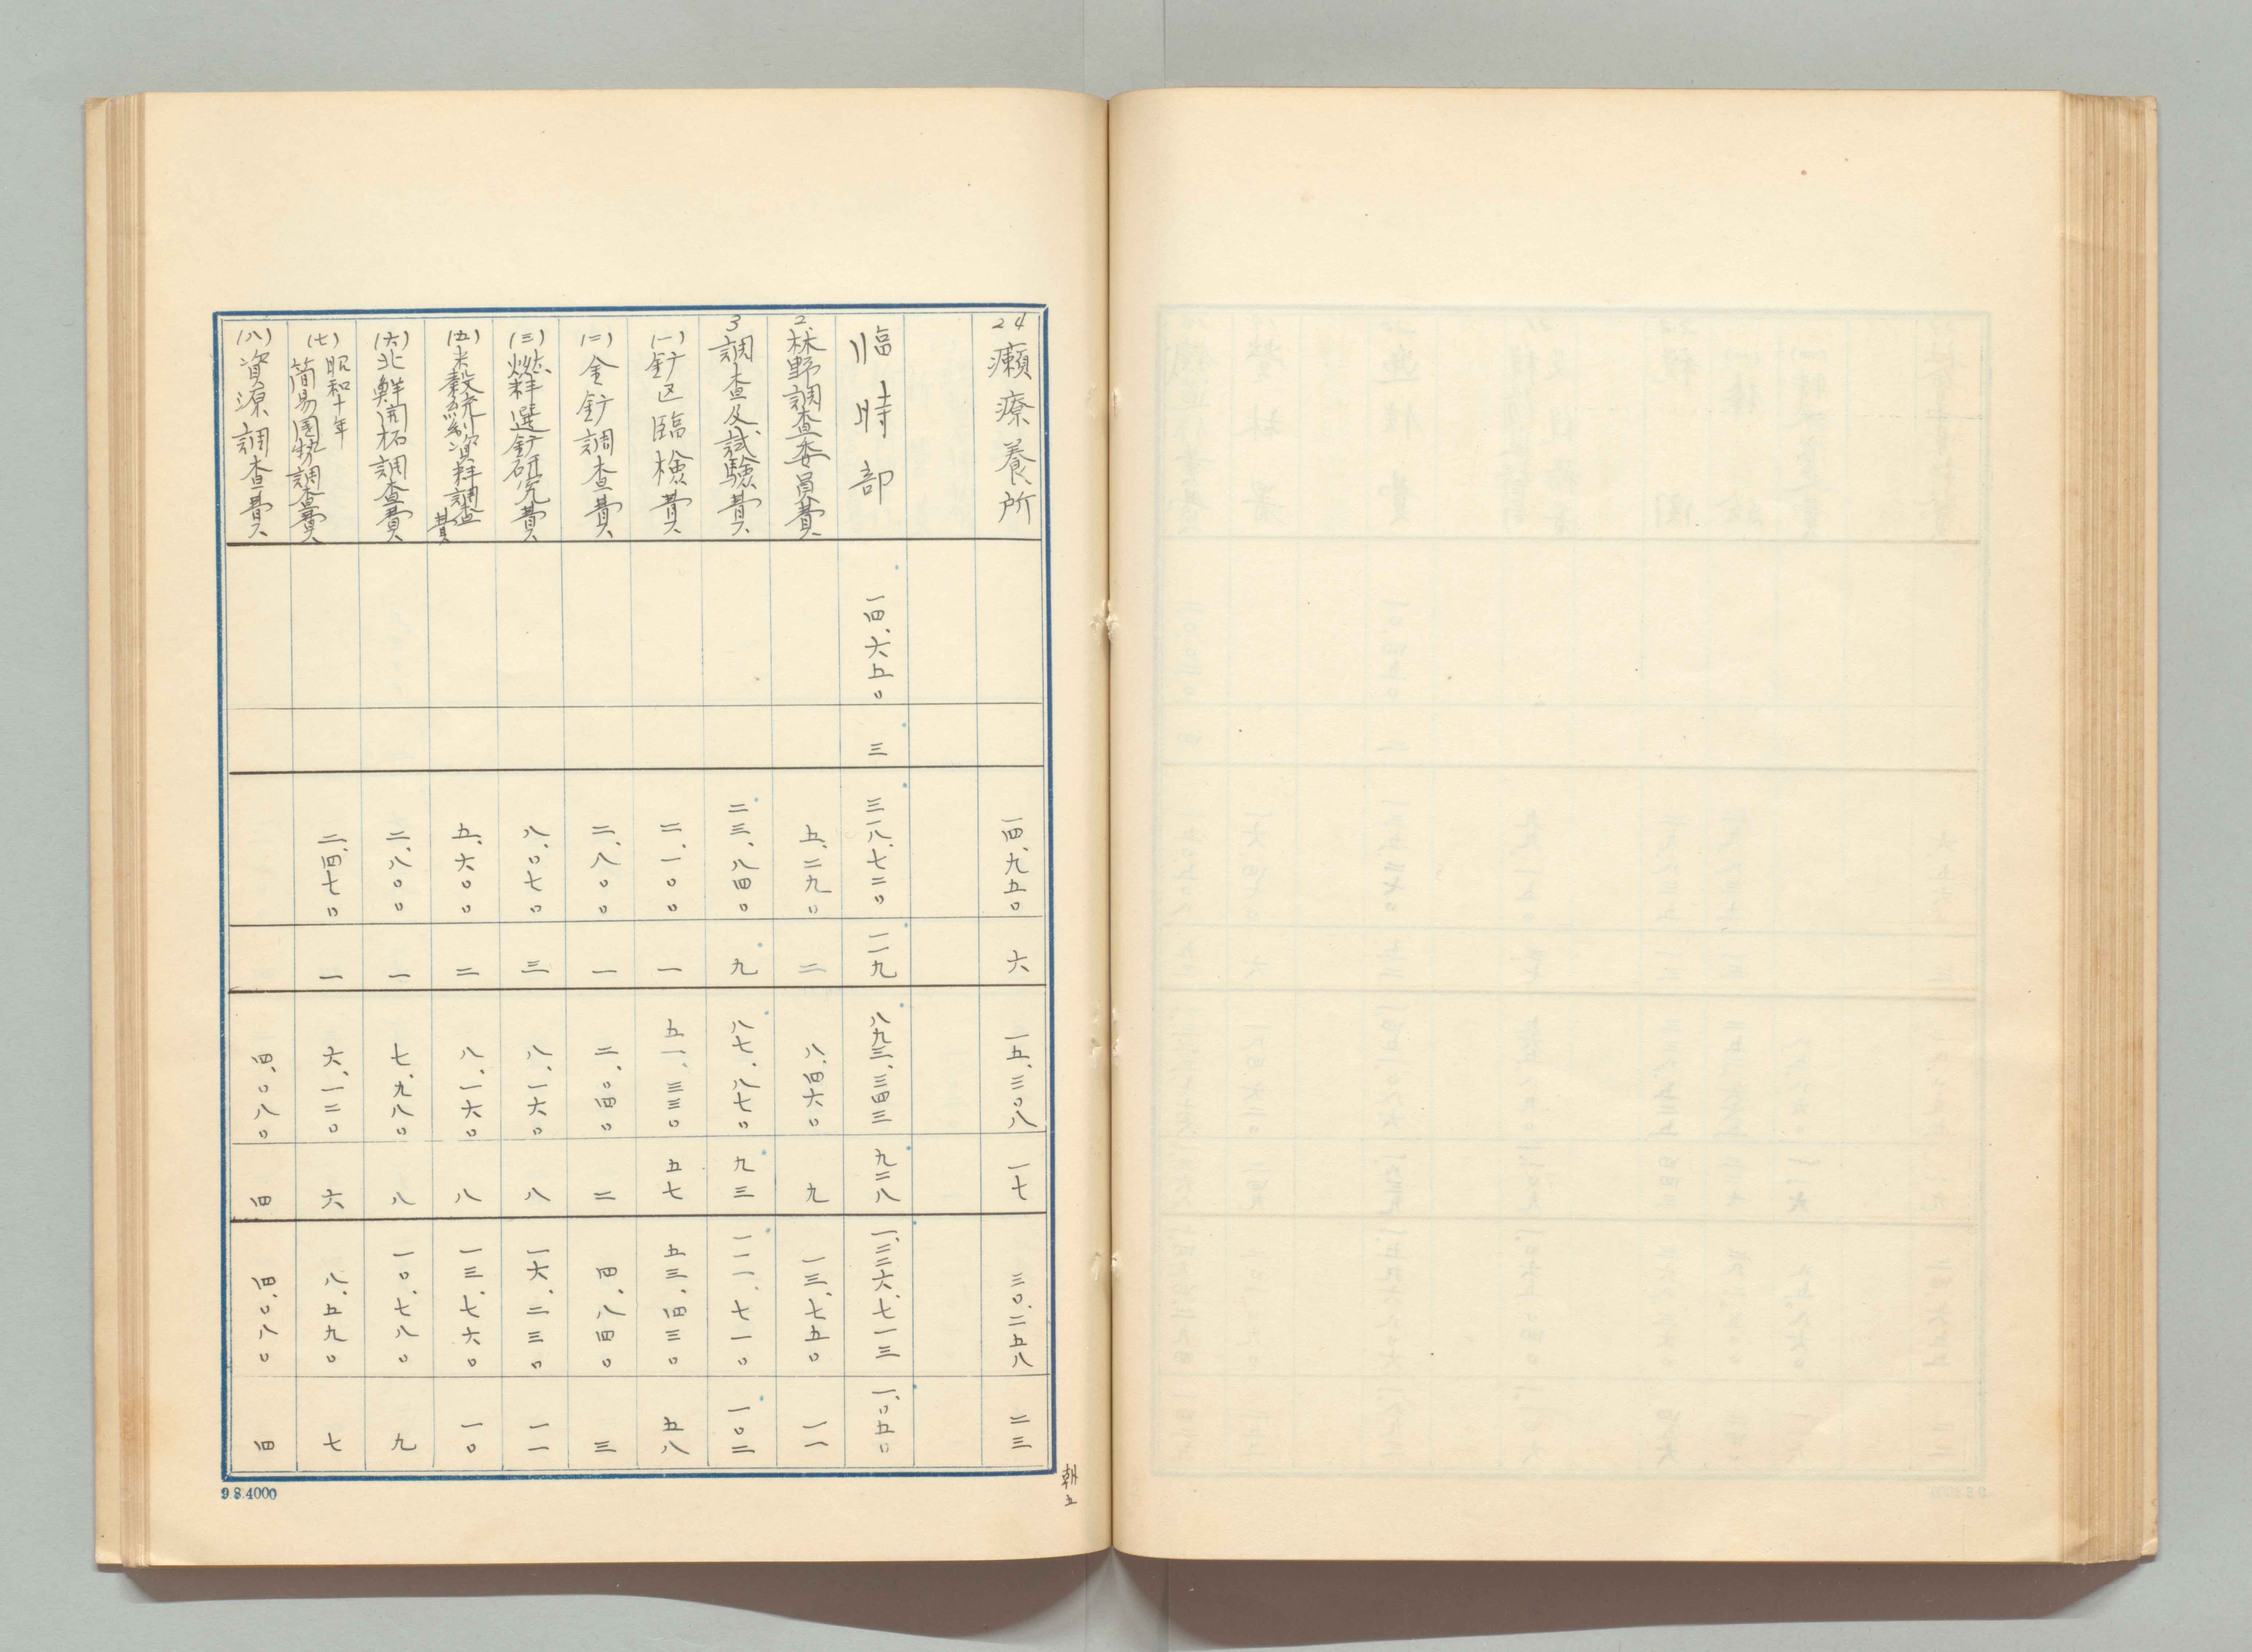 24 癩療養所 一四、九五〇 六 一五、三〇八 一七 三〇、二五八 二三
臨時部 一四、六五〇 三 三一八、七二〇 一一九 八九三、三四三 九二八 一、二二六、七一三 一、〇五〇
2. 林野調査委員費 五、二九〇 二 八、四六〇 九 一三、七五〇 一一
3 調査及試験費 二三、八四〇 九 八七、八七〇 九三 一一一、七一〇 一〇二
(一) 鉱区臨検費 二、一〇〇 一 五一、三三〇 五七 五三、四三〇 五八
(二) 金鉱調査費 二、八〇〇 一 二、〇四〇 二 四、八四〇 三
(三) 燃料選鉱研究費 八、〇七〇 三 八、一六〇 八 一六、二三〇 一一
(五) 米穀統制資料調査費 五、六〇〇 二 八、一六〇 八 一三、七六〇 一〇
(六) 北鮮開拓調査費 二、八〇〇 一 七、九八〇 八 一〇、七八〇 九
(七) 昭和十年
簡易国勢調査費 二、四七〇 一 六、一二〇 六 八、五九〇 七
(八) 資源調査費 四、〇八〇 四 四、〇八〇 四
朝五
9.8.4000